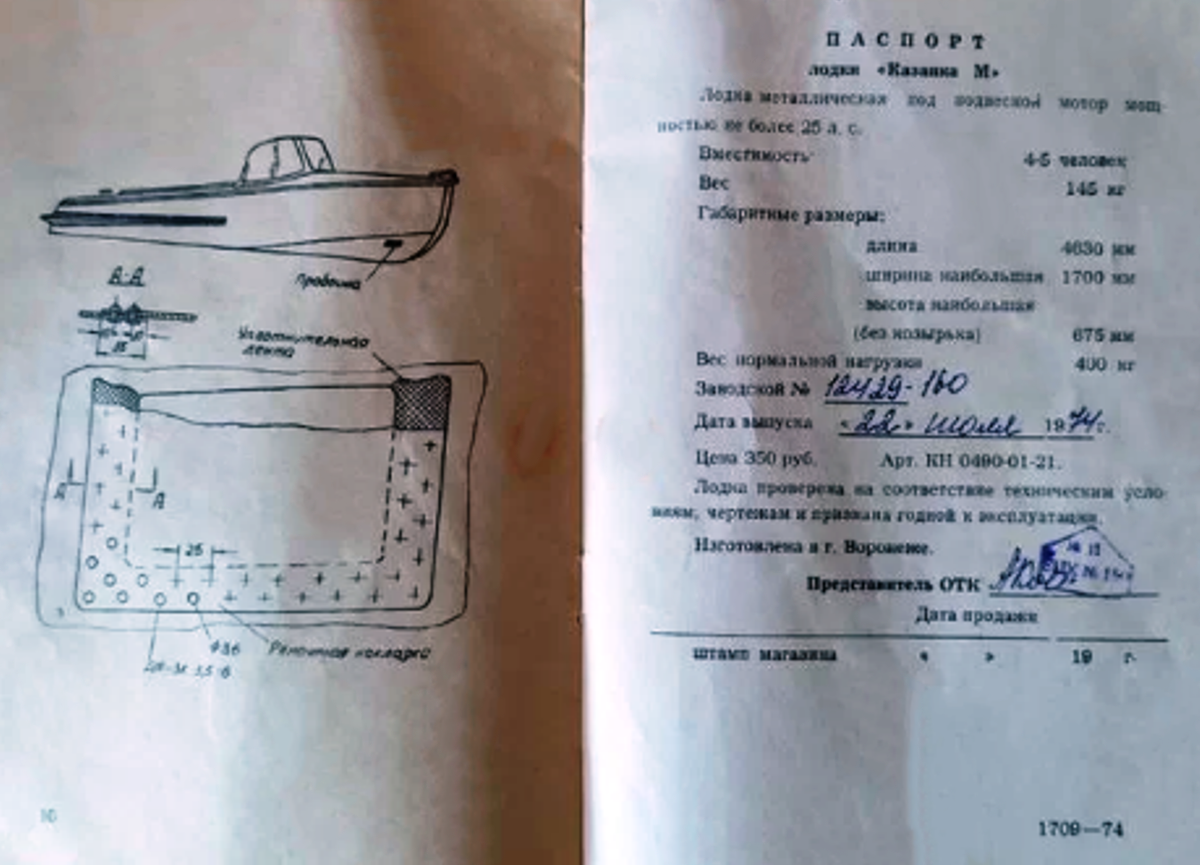 Пробоина
А-А
Уплотнительная
лента
А
А
26
Ремонтная накладка
10
ПАСПОРТ
лодки «Казанка М»
Лодка металлическая под подвесной мотор мощ-
ностью не более 25 л. с.
Вместимость 4-5 человек
Вес 145 кг
Габаритные размеры:
длина 4630 мм
ширина наибольшая 1700 мм
высота наибольшая
(без козырька) 675 мм
Вес нормальной нагрузки 400 кг
Заводской № 12429-160
Дата выпуска «22» июля 1974 г.
Цена 350 руб. Арт. КН 0490-01-21.
Лодка проверена на соответствие техническим усло-
виям, чертежам и признана годной к эксплуатации.
Изготовлена в г. Воронеже.
Представитель ОТК
Дата продажи
штамп магазина « » 19 г.
1709—74